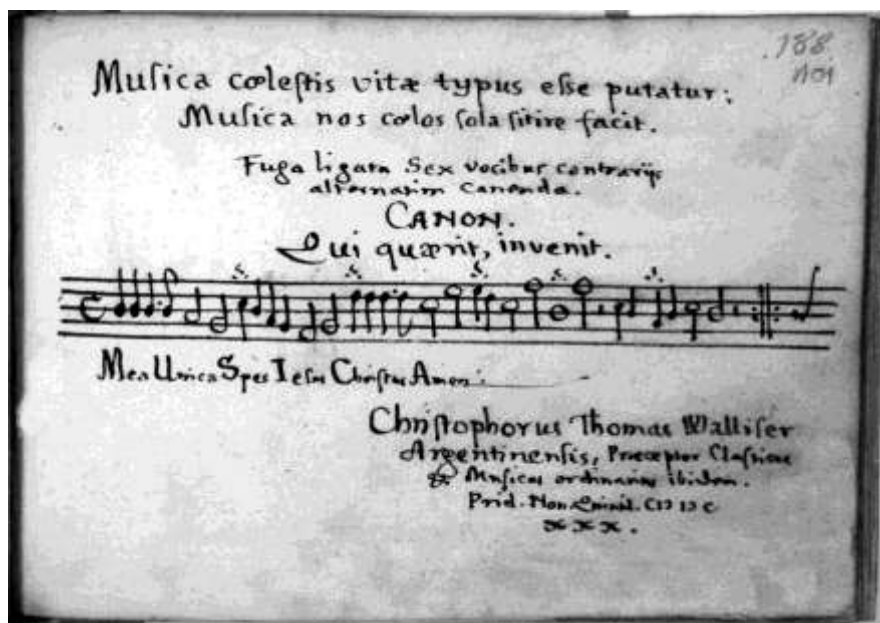 188
101
Musica cœlestis vitæ typus esse putatur:
Musica nos cœlos sola sitire facit.
Fuga ligata Sex vocibus contrarijs
alternatim canenda.
CANON.
Qui quærit, invenit.
Mea Unica Spes Iesus Christus Amen.
Christophorus Thomas Walliser
Argentinensis, Præceptor Classicus
& Musicus ordinarius ibidem.
Prid. Non. CIↃ IↃ C
XXX.